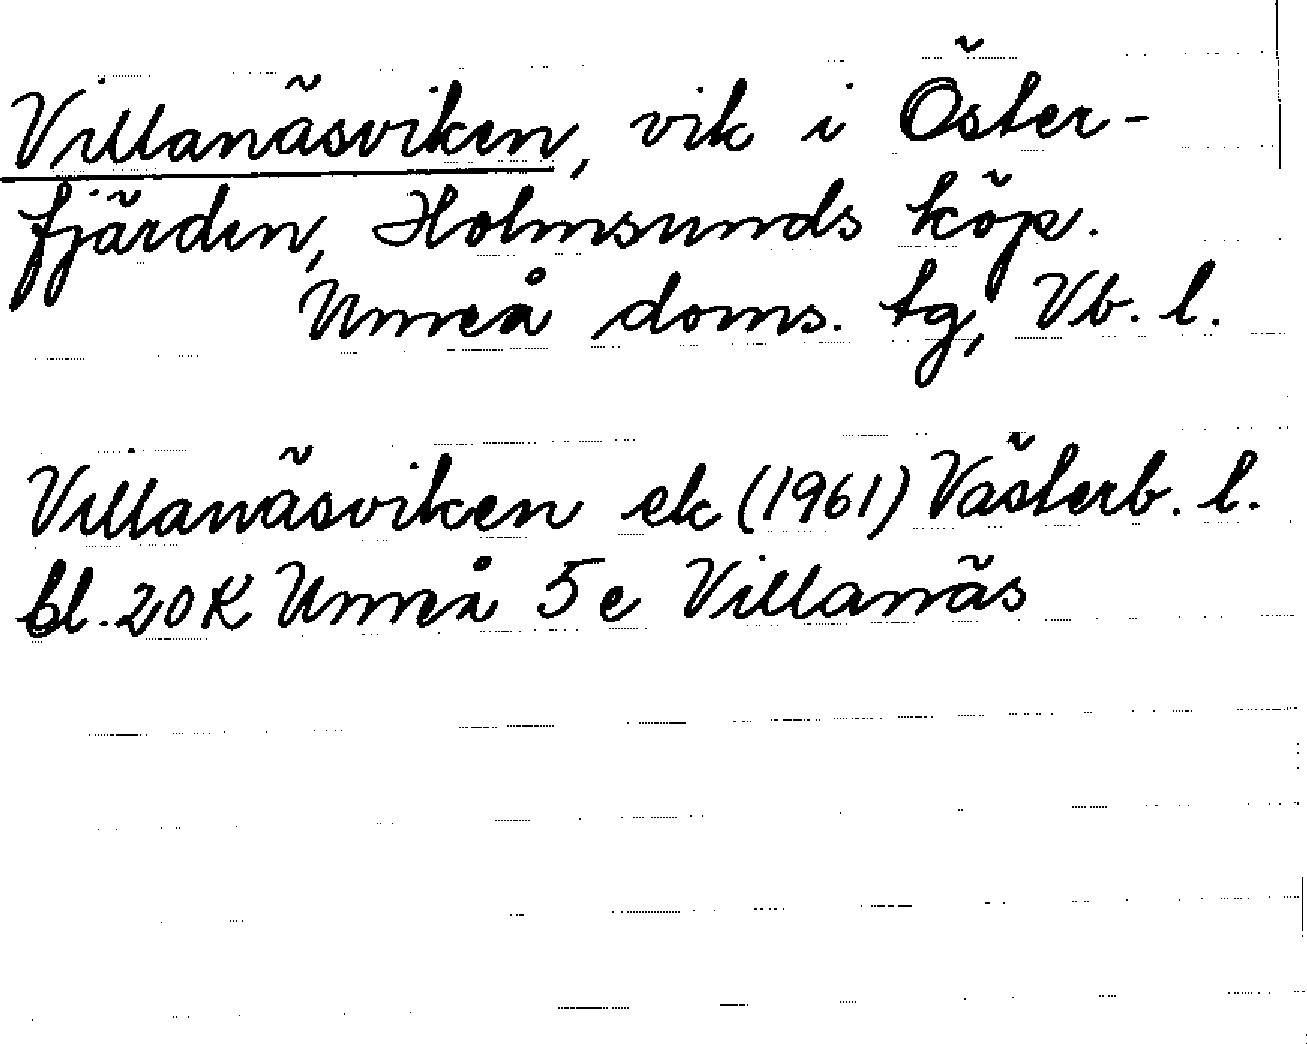 Villanäsviken, vik i Öster-
fjärden, Holmsunds köp.
Umeå doms. tg, Vb. l.
Villanäsviken ek (1961) Västerb. l.
bl. 20 K Umeå 5 e Villanäs